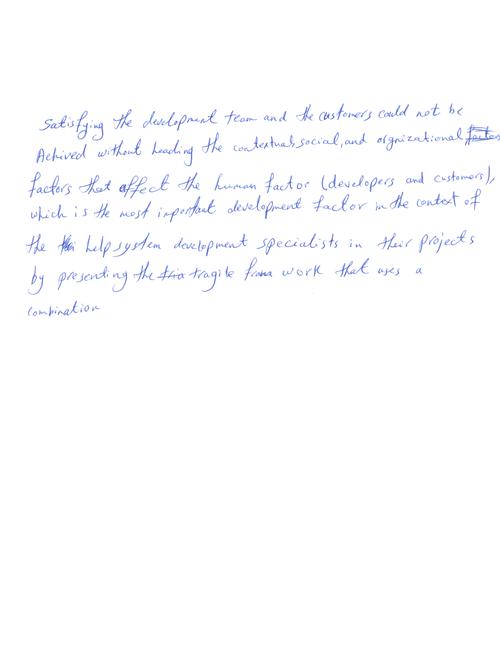 Satisfying the development team and the customers could not be
Achived without heading the contextual, social, and orgnizational factors
factors that affect the human factor (developers and customers),
which is the most important development factor in the context of
the help system development specialists in their projects
by presenting the tria tragile frama work that uses a
combination